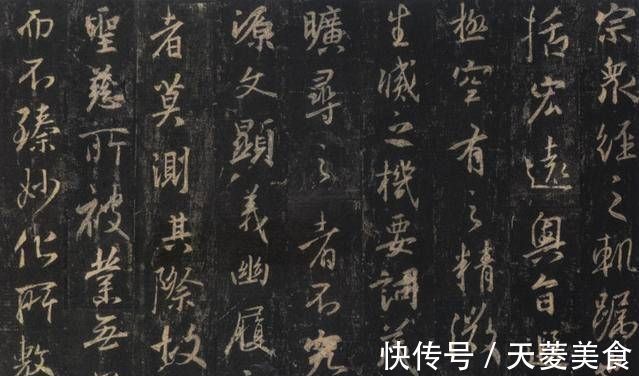 宗衆經之軌躅
括宏遠奧旨遐
極空有之精微
生滅之機要詞茂
曠尋之者不究
源文顯義幽履
者莫測其際故
聖慈所被業無
而不臻妙化所敷
快传号 / 天菱美食